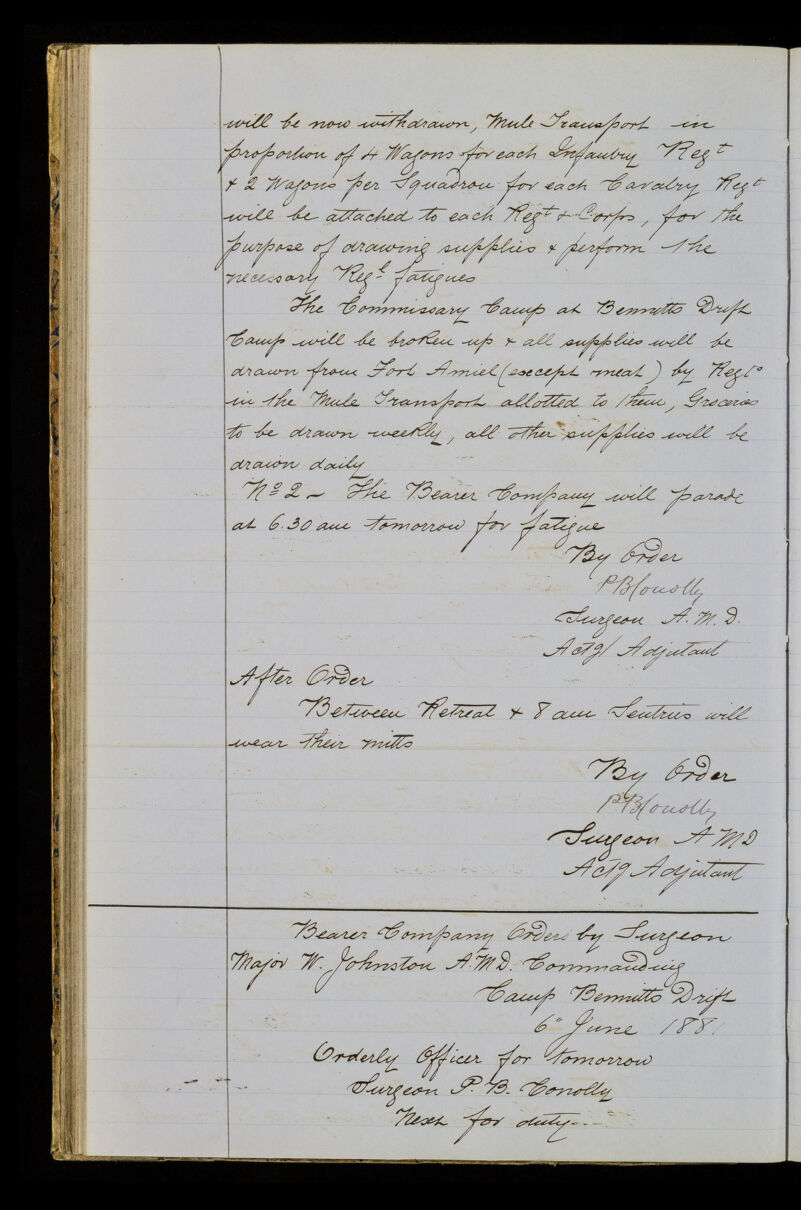 will be now withdrawn, Mule Transport in
proportion of 4 Wagons for each Infantry Regt
+ 2 Wagons per Squadron for each Cavalry Regt
will be attached to each Regt & Corps, for the
purpose of drawing supplies & perform the
necessary Regl fatigues
The Commissary Camp at Bennetts Drift
Camp will be broken up & all supplies will be
drawn from Fort Amiel (except meat) by Regts
in the Mule Transport allotted to them, Groceries
to be drawn weekly, all other supplies will be
drawn daily
No 2 - The Bearer Company will parade
at 6.30 am tomorrow for fatigue
By Order
P B Conolly
Surgeon A. M. D.
Actg/ Adjutant
After Order
Between Retreat & 8 am Sentries will
wear their mitts
By Order
P B Conolly
Surgeon A M D
Actg Adjutant
Bearer Company Orders by Surgeon
Major W. Johnston A.M D. Commanding
Camp Bennetts Drift
6" June 1881
Orderly Officer for tomorrow
Surgeon P. B. Conolly
Next for duty